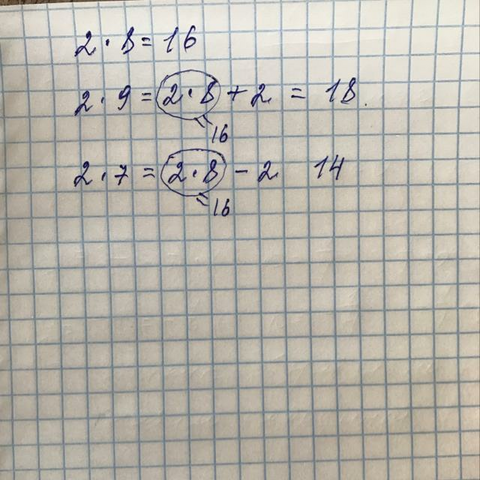 2 · 8 = 16
2 · 9 = 2 · 8 + 2 = 18.
= 16
2 · 7 = 2 · 8 - 2 14
= 16